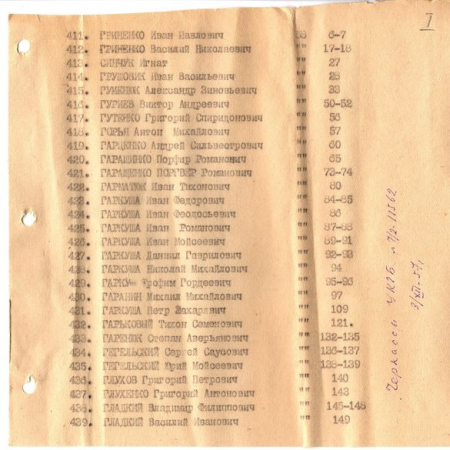 I
411. ГРИНЕНКО Иван Павлович 6-7
412. ГРИНЕНКО Василий Николаевич "" 17-18
413. Игнат "" 27
414. ГРУШОВИК Иван Васильевич "" 28
415. Александр Зиновьевич "" 33
416. ГУРИЕВ Виктор Андреевич "" 50-52
417. ГУТЕНКО Григорий Спиридонович "" 56
418. ГОРЬЯ Антон Михайлович "" 57
419. Андрей Сильвестрович "" 60
420. Порфир Романович "" 65
421. Романович "" 73-74
422. ГАРМАТЮК Иван Тихонович "" 80
423. ГАРКУША Иван Федорович "" 84-85
424. ГАРКУША Иван Феодосьевич "" 86
425. ГАРКУША Иван Романович "" 87-88
426. ГАРКУША Иван Мойсеевич "" 89-91
427. ГАРКУША Даниил Гаврилович "" 92-93
428. ГАРКУША Николай Михайлович "" 94
429. Трофим Гордеевич "" 95-96
430. Михаил Михайлович "" 97
431. ГАРКУША Петр Захарович "" 109
432. ГАРЬКОВЫЙ Тихон Семенович "" 121.
433. Степан Аверьянович "" 132-135
434. ГЕГЕЛЬСКИЙ Сергей "" 136-137
435. ГЕГЕЛЬСКИЙ Юрий Мойсеевич "" 138-139
436. ГЛУХОВ Григорий Петрович "" 140
437. ГЛУХЕНКО Григорий Антонович "" 143
438. ГЛАДКИЙ Владимир Филиппович "" 145-148
439. ГЛАДКИЙ Василий Иванович "" 149
Черкассы